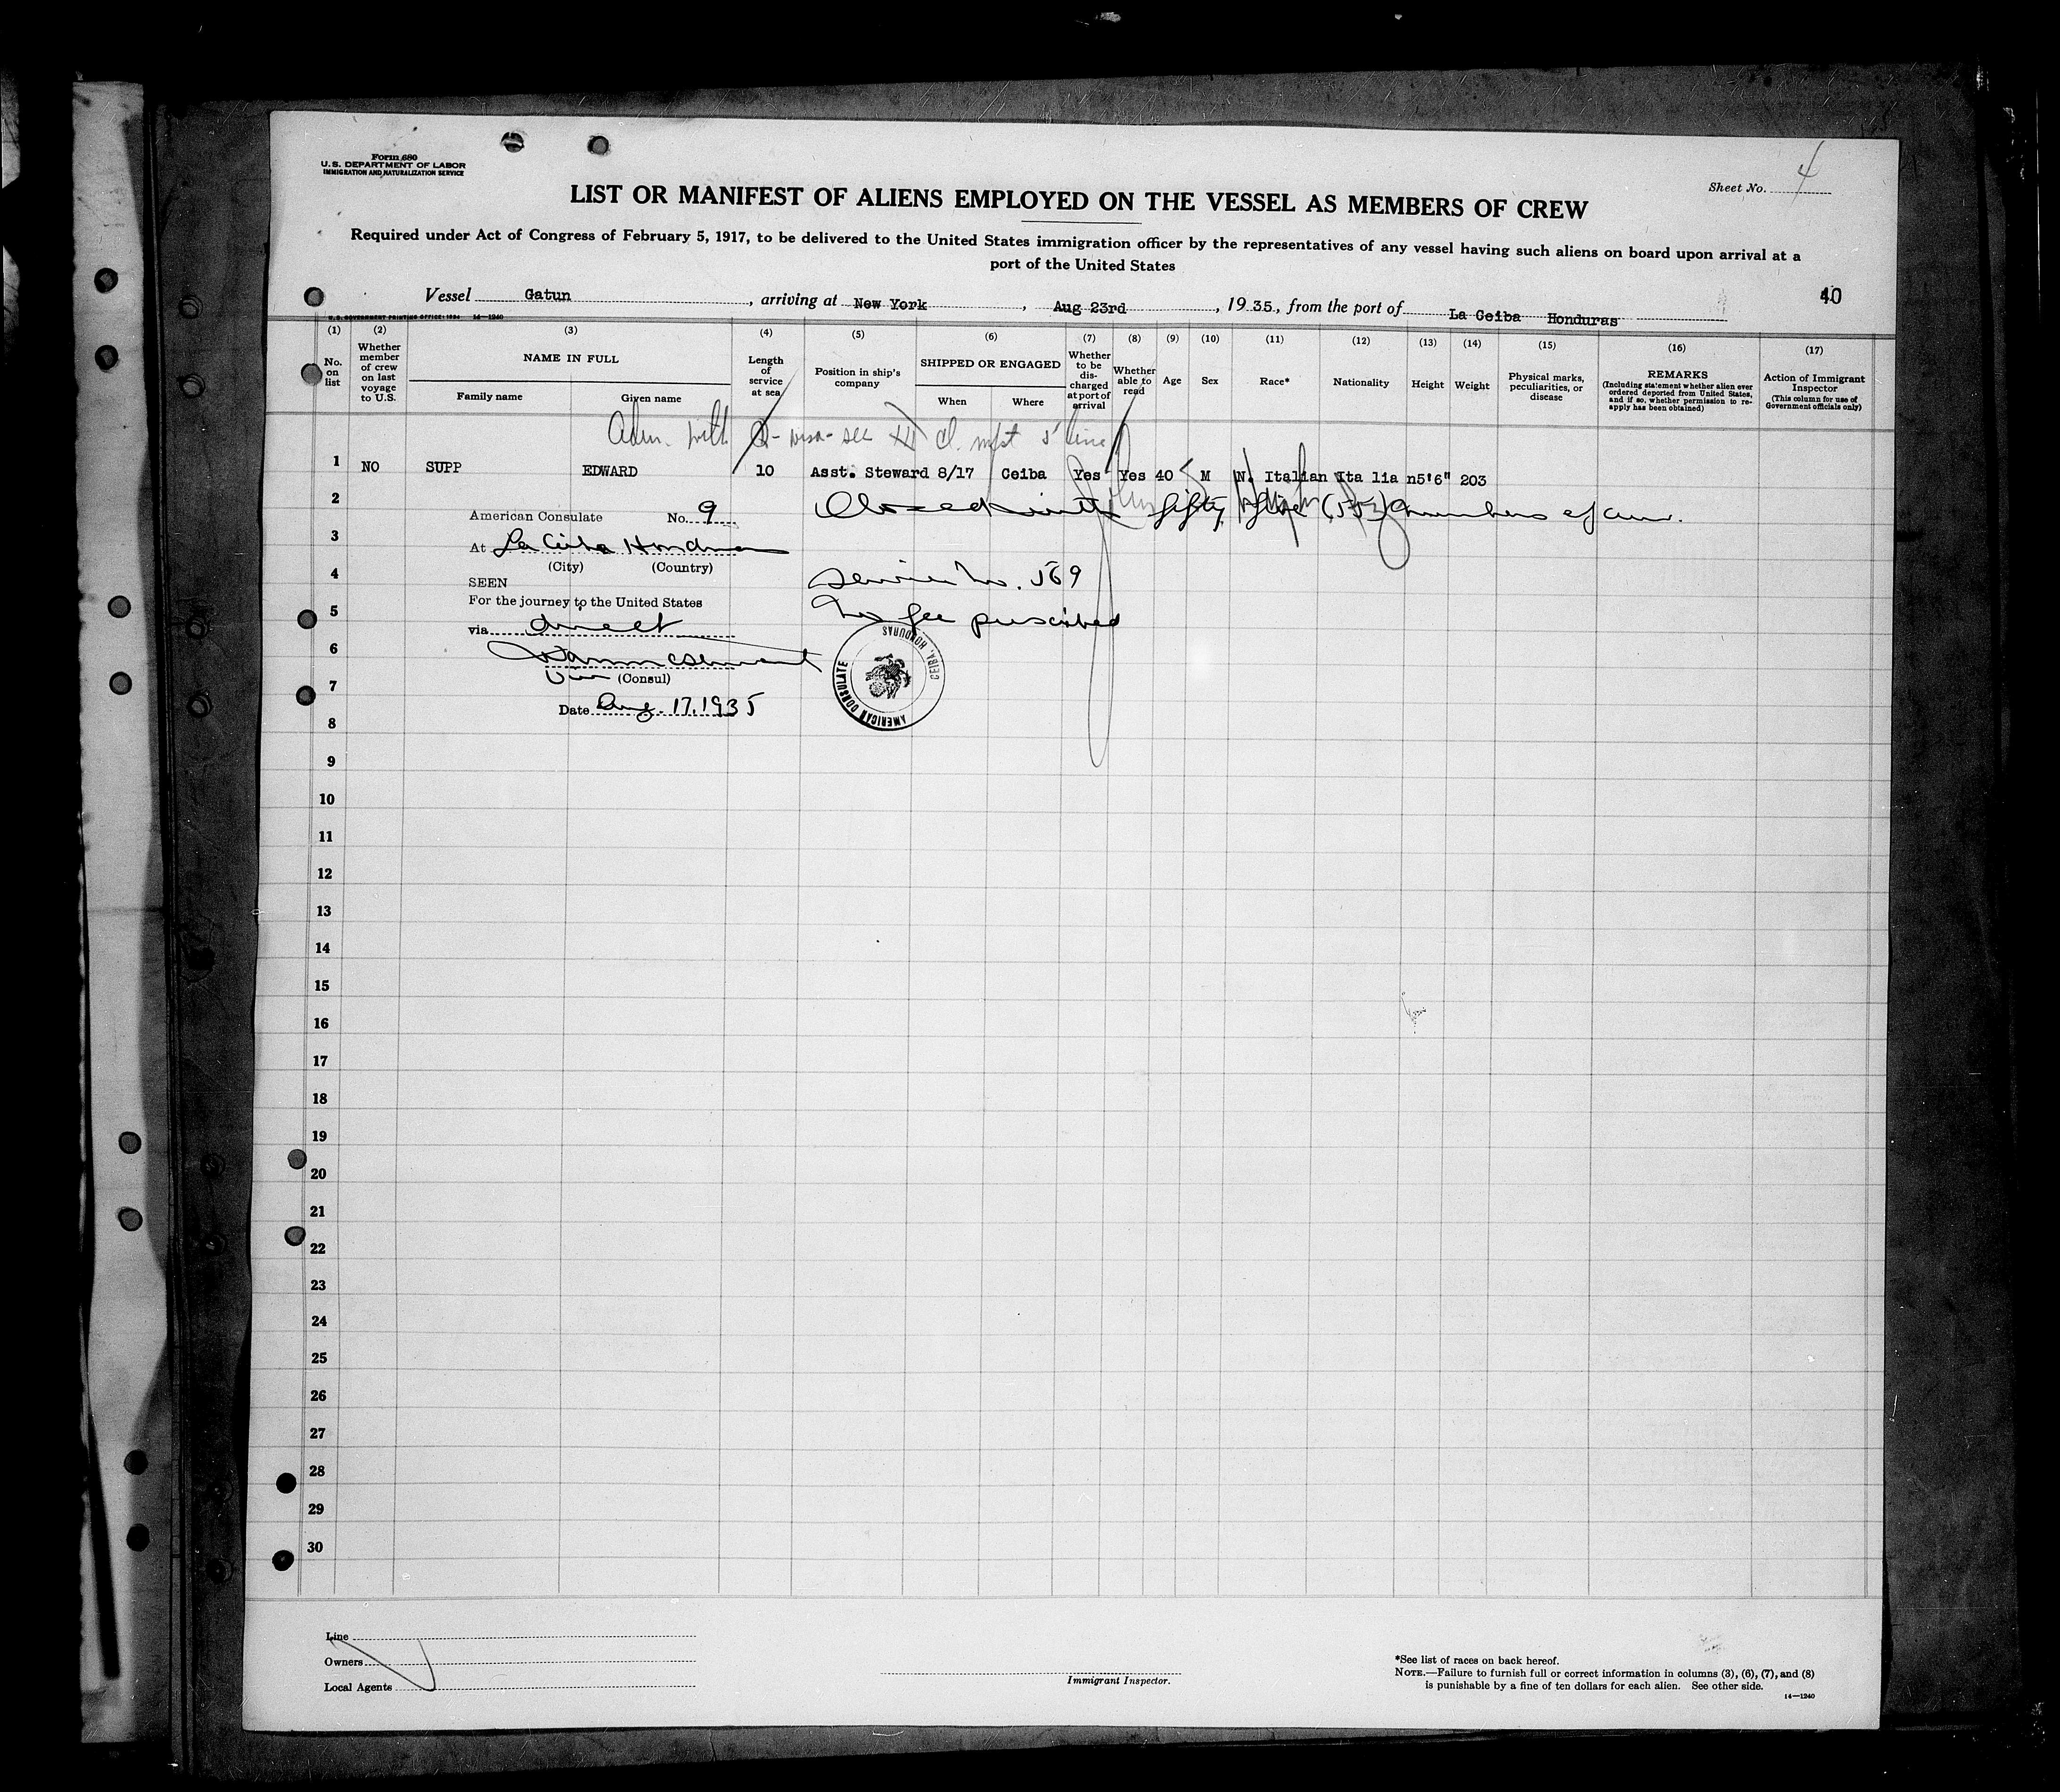 Form 680
U.S. DEPARTMENT OF LABOR
IMMIGRATION AND NATURALIZATION SERVICE
Sheet No. 4
LIST OR MANIFEST OF ALIENS EMPLOYED ON THE VESSEL AS MEMBERS OF CREW
Required under Act of Congress of February 5, 1917, to be delivered to the United States immigration officer by the representatives of any vessel having such aliens on board upon arrival at a
port of the United States
40
Vessel Gatun, arriving at New York, Aug 23rd, 1935, from the port of La Ceiba Honduras
U.S. GOVERNMENT PRINTING OFFICE: 1934 14—1240
(1) (2) (3) (4) (5) (6) (7) (8) (9) (10) (11) (12) (13) (14) (15) (16) (17)
No. on list
Whether member of crew on last voyage to U.S.
NAME IN FULL
Family name
Given name
Length of service at sea
Position in ship's company
SHIPPED OR ENGAGED
When
Where
Whether to be discharged at port of arrival
Whether able to read
Age
Sex
Race*
Nationality
Height
Weight
Physical marks, peculiarities, or disease
REMARKS
(Including statement whether alien ever ordered deported from United States, and if so, whether permission to reapply has been obtained)
Action of Immigrant Inspector
(This column for use of Government officials only)
Adm. with visa - see cl. mfst 5' line
1 NO SUPP EDWARD 10 Asst. Steward 8/17 Ceiba Yes Yes 40 M N. Italian Ita lia n5'6" 203
2 Closed with fifty five (55) members of crew.
American Consulate No. 9
3
At La Ceiba Honduras
(City) (Country)
4
SEEN
Service No. 569
For the journey to the United States
5
No fee prescribed
via direct
6
Vice (Consul)
7
AMERICAN CONSULATE
CEIBA, HONDURAS
Date Aug. 17, 1935
8
9
10
11
12
13
14
15
16
17
18
19
20
21
22
23
24
25
26
27
28
29
30
Line
Owners
Local Agents
Immigrant Inspector.
*See list of races on back hereof.
NOTE.—Failure to furnish full or correct information in columns (3), (6), (7), and (8)
is punishable by a fine of ten dollars for each alien. See other side.
14—1240